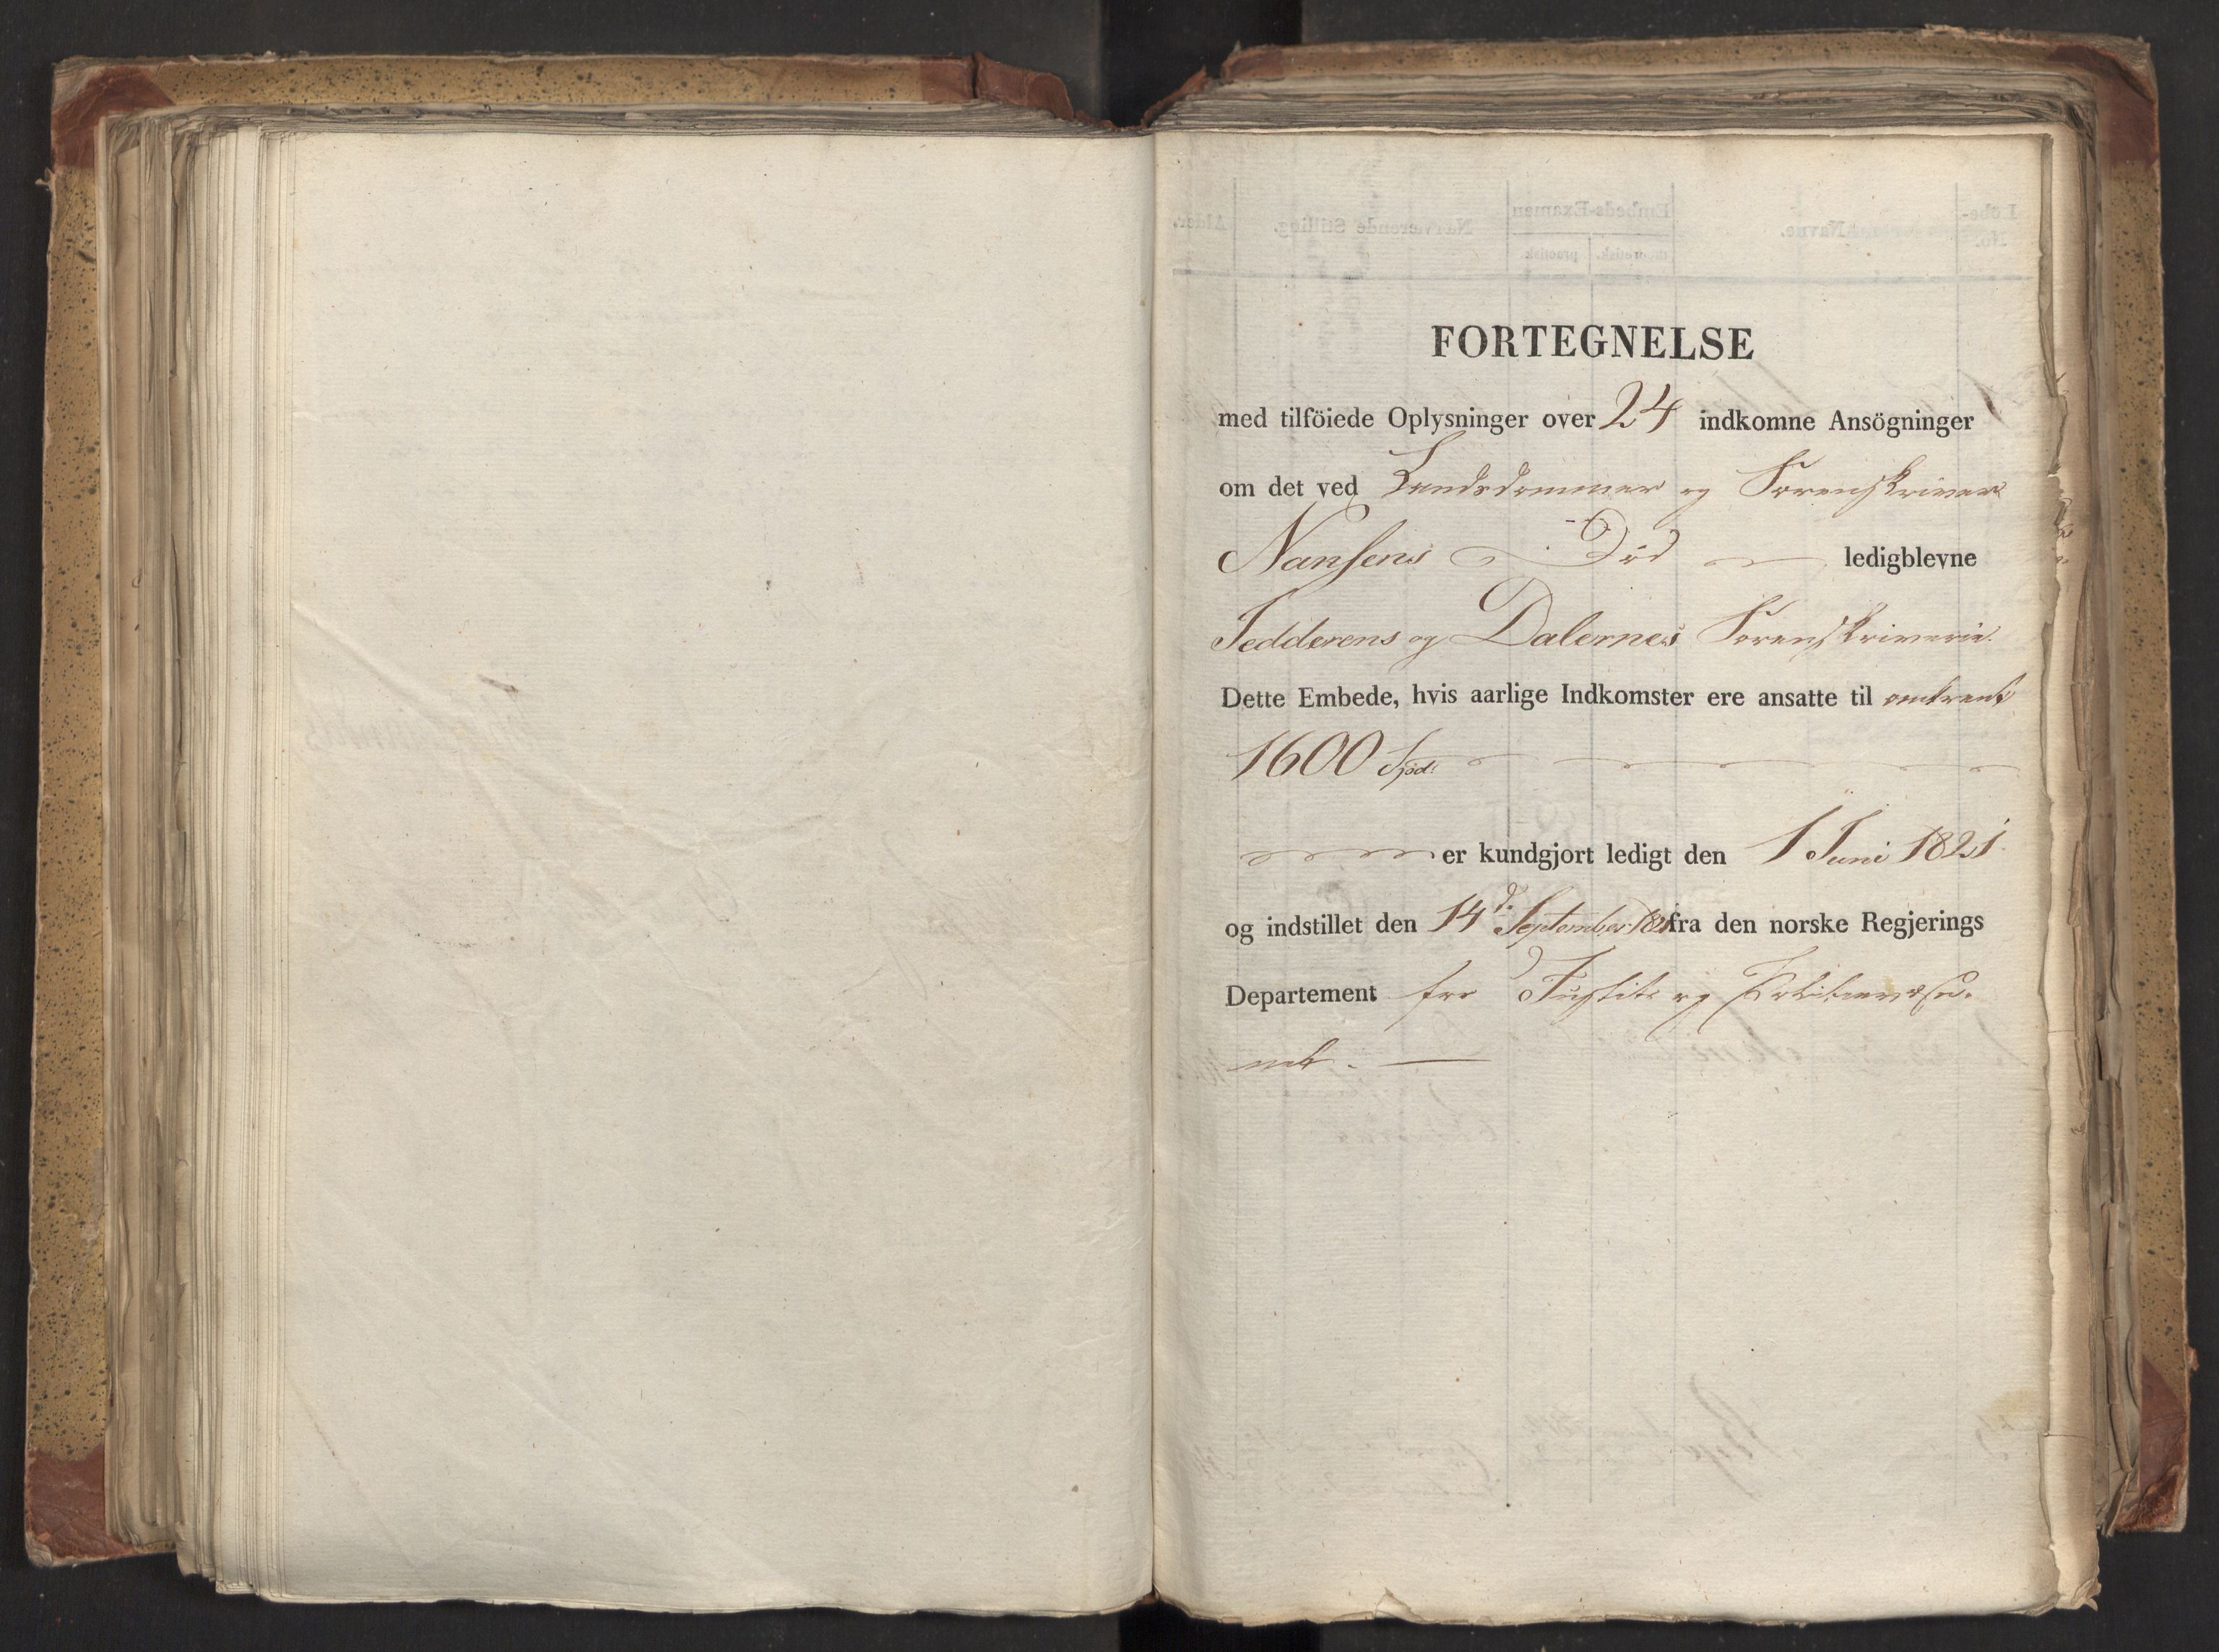 FORTEGNELSE
med tilföiede Oplysninger over 24 indkomne Ansögninger
om det ved Landsdommer og Sorenskriver
Nansens Död ledigblevne
Jedderens og Dalernes Sorenskriverie.
Dette Embede, hvis aarlige Indkomster ere ansatte til omtrent
1600 Spd:
er kundgjort ledigt den 1 Juni 1821.
og indstillet den 14d. September 1821 fra den norske Regjerings
Departement for Justits og Politievæse-
net.